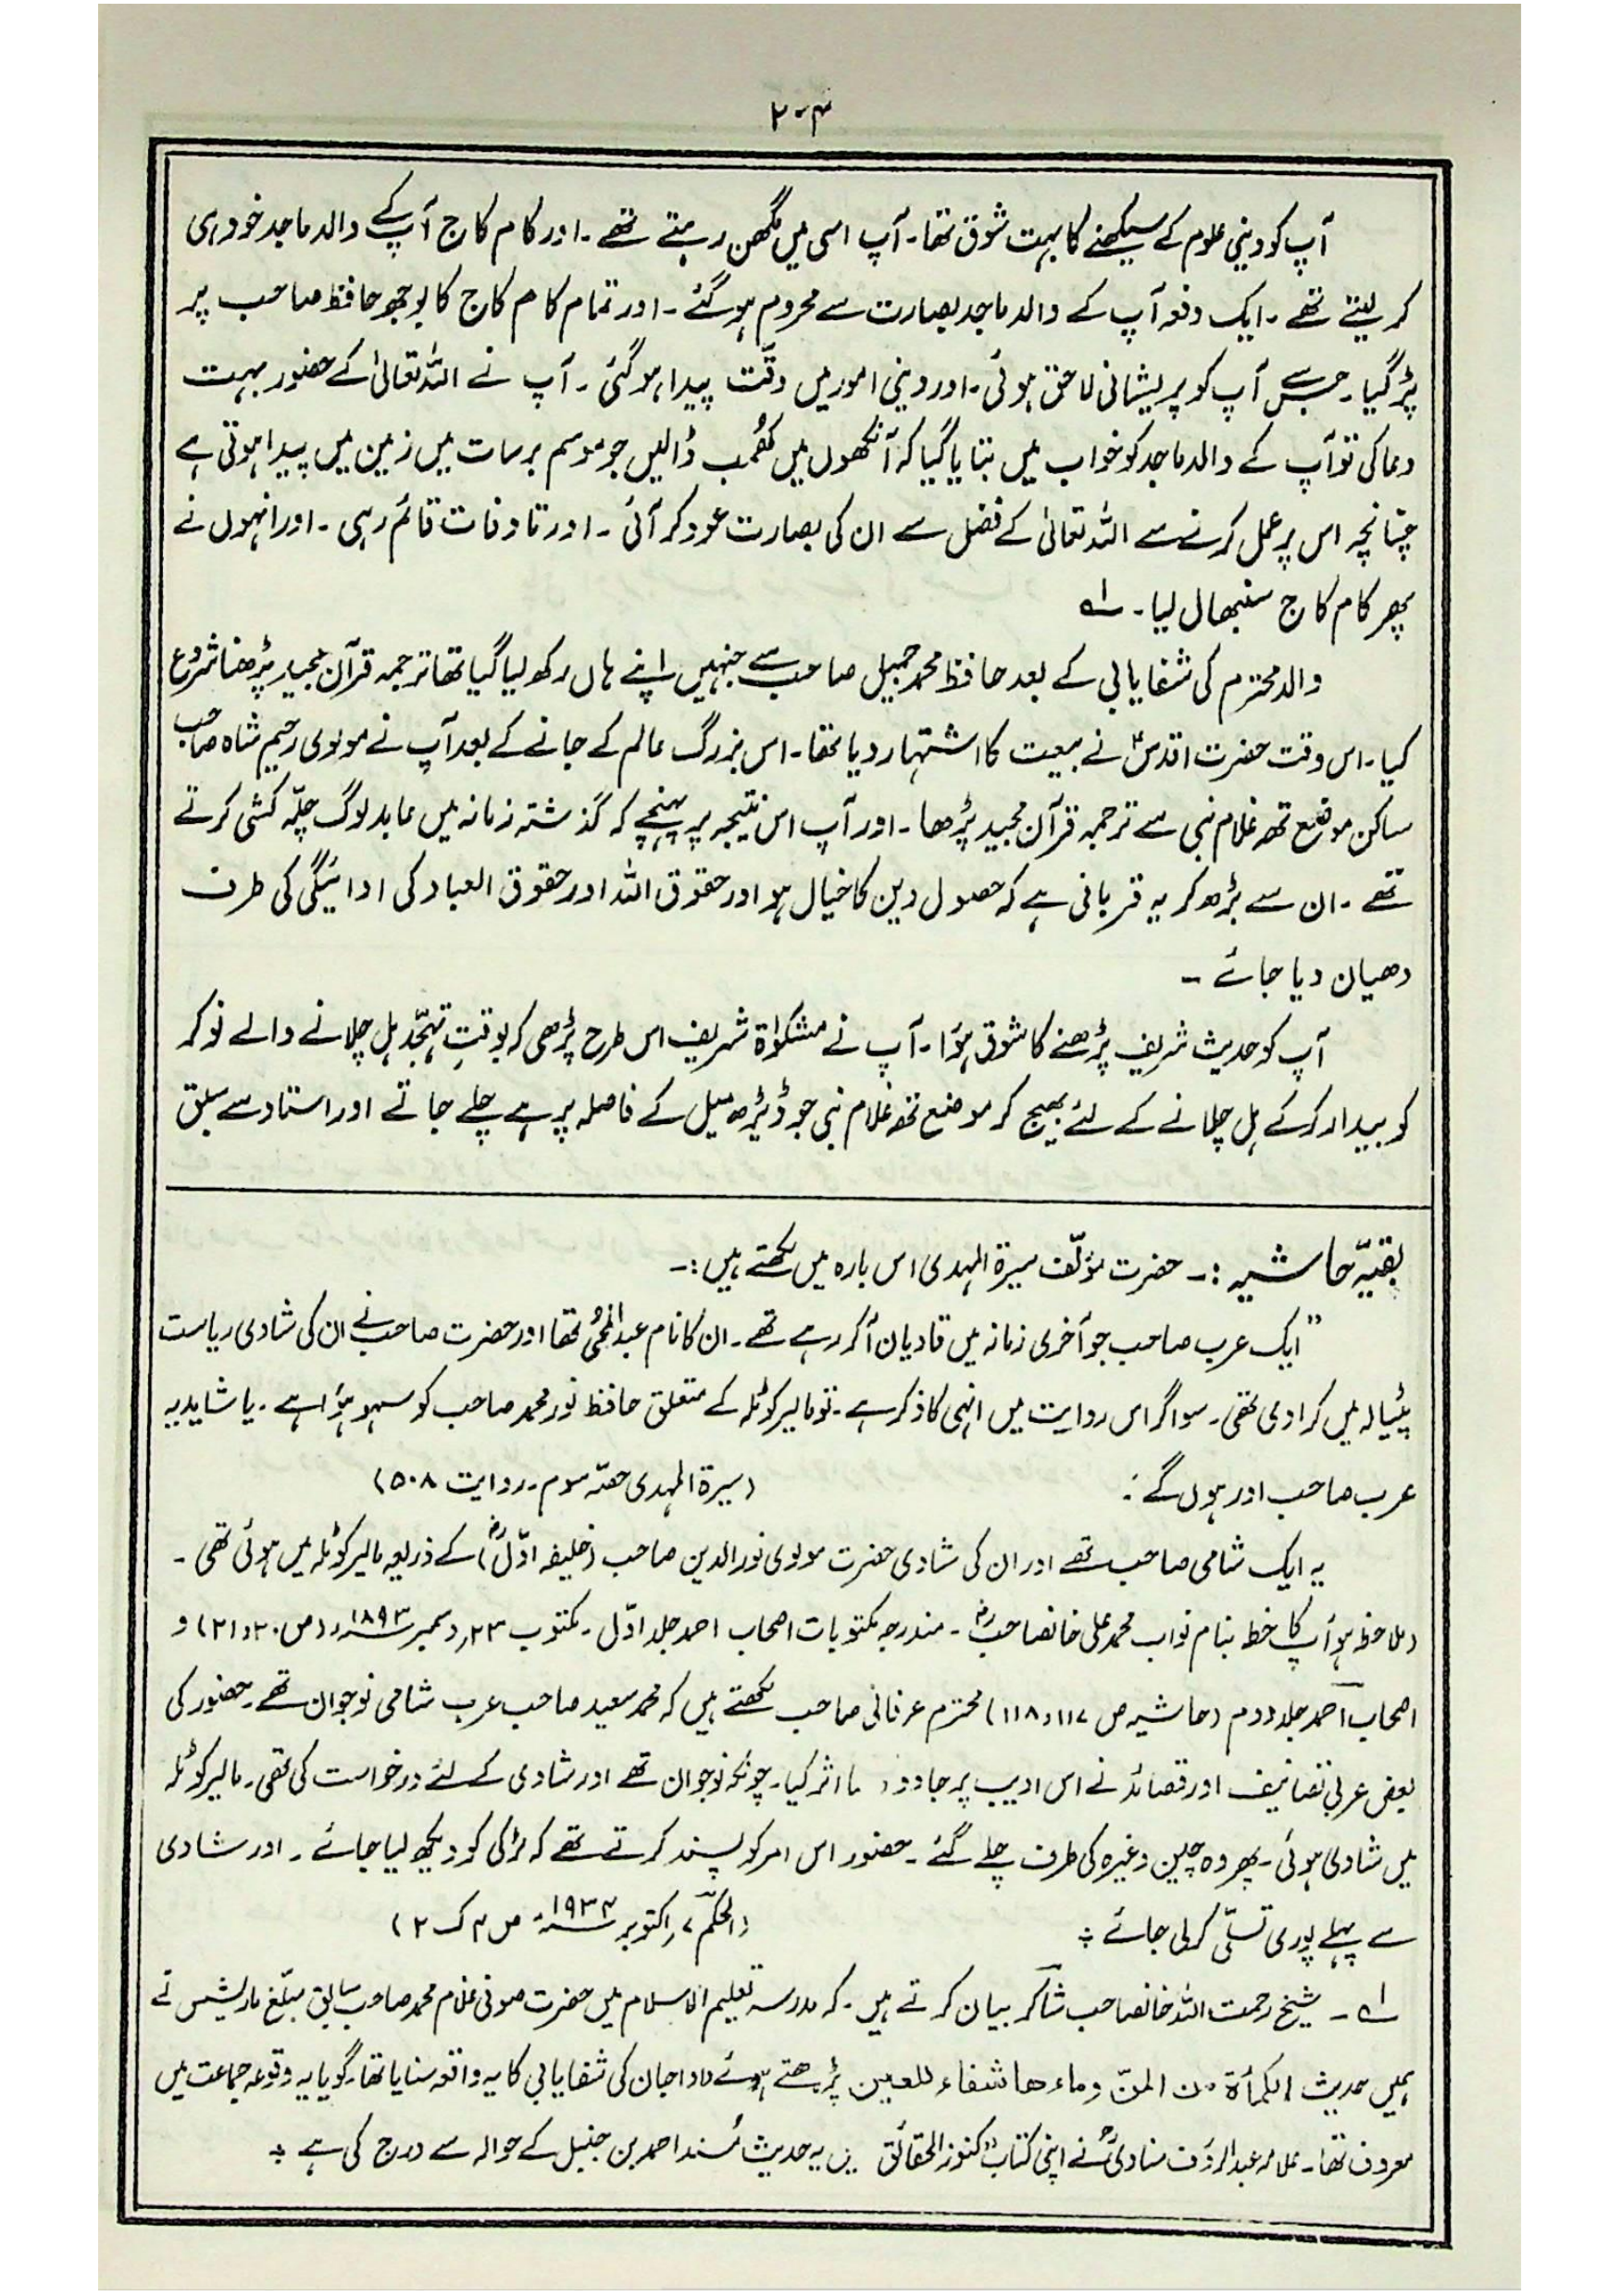 ۲۰۴
آپ کو دینی علوم کے سیکھنے کا بہت شوق تھا۔ آپ اسی میں مگھن رہتے تھے۔ اور کام کاج آپ کے والد ماجد خود ہی
کر لیتے تھے۔ ایک دفعہ آپ کے والد ماجد بصارت سے محروم ہو گئے۔ اور تمام کام کاج کا بوجھ حافظ صاحب پر
پڑ گیا۔ جس سے آپ کو پریشانی لاحق ہوئی۔ اور دینی امور میں دقّت پیدا ہو گئی۔ آپ نے اللہ تعالیٰ کے حضور بہت
دعا کی تو آپ کے والد ماجد کو خواب میں بتایا گیا کہ آنکھوں میں کھُمب ڈالیں جو موسم برسات میں زمین میں پیدا ہوتی ہے
چنانچہ اس پر عمل کرنے سے اللہ تعالیٰ کے فضل سے ان کی بصارت عود کر آئی۔ اور تا وفات قائم رہی۔ اور انہوں نے
پھر کام کاج سنبھال لیا۔ ؎۱
والد محترم کی شفایابی کے بعد حافظ محمد جمیل صاحب سے جنہیں اپنے ہاں رکھ لیا گیا تھا ترجمہ قرآن مجید پڑھنا شروع
کیا۔ اس وقت حضرت اقدسؑ نے بیعت کا اشتہار دیا تھا۔ اس بزرگ عالم کے جانے کے بعد آپ نے مولوی رحیم شاہ صاحب
ساکن موضع تھہ غلام نبی سے ترجمہ قرآن مجید پڑھا۔ اور آپ اس نتیجہ پر پہنچے کہ گذشتہ زمانہ میں عابد لوگ چلّہ کشی کرتے
تھے۔ ان سے بڑھ کر یہ قربانی ہے کہ حصول دین کا خیال ہو اور حقوق اللہ اور حقوق العباد کی ادائیگی کی طرف
دھیان دیا جائے۔
آپ کو حدیث شریف پڑھنے کا شوق ہؤا۔ آپ نے مشکوٰۃ شریف اس طرح پڑھی کہ بوقتِ تہجّد ہل چلانے والے نوکر
کو بیدار کر کے ہل چلانے کے لئے بھیج کر موضع تھہ غلام نبی جو ڈیڑھ میل کے فاصلہ پر ہے چلے جاتے اور استاد سے سبق
بقیّہ حاشیہ :۔ حضرت مؤلّف سیرۃ المہدی اس بارہ میں لکھتے ہیں:۔
”ایک عرب صاحب جو آخری زمانہ میں قادیان آ کر رہے تھے۔ ان کا نام عبدالمحیٔ تھا اور حضرت صاحب نے ان کی شادی ریاست
پٹیالہ میں کرا دی تھی۔ سو اگر اس روایت میں انہی کا ذکر ہے۔ تو مالیر کوٹلہ کے متعلق حافظ نور محمد صاحب کو سہو ہؤا ہے۔ یا شاید یہ
عرب صاحب اور ہوں گے؛ (سیرۃ المہدی حصّہ سوم۔ روایت ۵۰۸)
یہ ایک شامی صاحب تھے اور ان کی شادی حضرت مولوی نور الدین صاحب (خلیفہ اوّلؓ) کے ذریعہ مالیر کوٹلہ میں ہوئی تھی۔
(ملاحظہ ہو آپ کا خط بنام نواب محمد علی خانصاحبؓ۔ مندرجہ مکتوبات اصحاب احمد جلد اوّل۔ مکتوب ۲۳؍ دسمبر ۱۸۹۳ء (ص ۲۰، ۲۱) و
اصحاب احمد جلد دوم (حاشیہ ص ۱۱۷، ۱۱۸) محترم عرفانی صاحب لکھتے ہیں کہ محمد سعید صاحب عرب شامی نوجوان تھے۔ حضور کی
بعض عربی تصانیف اور قصائد نے اس ادیب پر جادو اثر کیا۔ چونکہ نوجوان تھے اور شادی کے لئے درخواست کی تھی۔ مالیر کوٹلہ
میں شادی ہوئی۔ پھر وہ چین وغیرہ کی طرف چلے گئے۔ حضور اس امر کو پسند کرتے تھے کہ لڑکی کو دیکھ لیا جائے۔ اور شادی
سے پہلے پوری تسلّی کر لی جائے ؛ (الحکم ۷؍ اکتوبر ۱۹۳۴ء ص ۴ ک ۲)
؎۱۔ شیخ رحمت اللہ خانصاحب شاکر بیان کرتے ہیں۔ کہ مدرسہ تعلیم الاسلام میں حضرت صوفی غلام محمد صاحب سابق مبلّغ ماریشس نے
ہمیں حدیث الکمأۃ من المنّ وماءھا شفاء للعین پڑھتے ہوئے دادا جان کی شفایابی کا یہ واقعہ سنایا تھا۔ گویا یہ وقوعہ جماعت میں
معروف تھا۔ علامہ عبدالرؤف مناویؒ نے اپنی کتاب ”کنوز الحقائق میں یہ حدیث مُسند احمد بن حنبل کے حوالہ سے درج کی ہے ؛